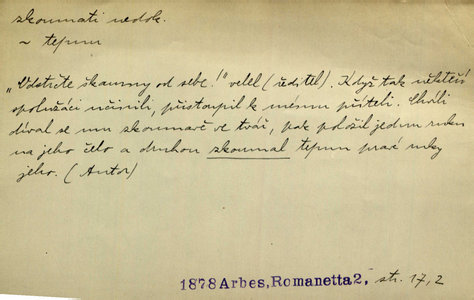 skoumati nedok.
~ tepnu
"Odstrčte škamny od sebe!" velel (ředitel). Když tak někteří
spolužáci učinili, přistoupil k mému příteli. Chvíli
díval se mu skoumavě ve tvář, pak položil jednu ruku
na jeho čelo a druhou skoumal tepnu pravé ruky
jeho. (Autor)
1878 Arbes, Romanetta 2, str. 17,2